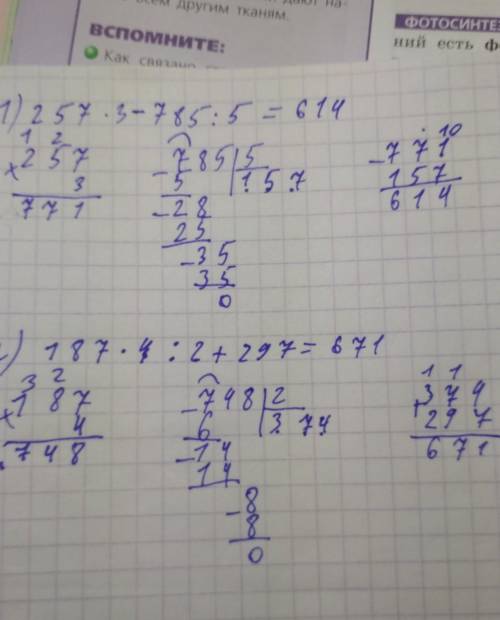 дают на-
всем другим тканям.
ВСПОМНИТЕ:
Как связано
ФОТОСИНТЕ
ний есть ф
1) 257 · 3 - 785 : 5 = 614
1 2
× 257
3
771
- 785 | 5
5 | 157
- 28
25
- 35
35
0
· 10
- 771
157
614
) 187 · 4 : 2 + 297 = 671
3 2
× 187
4
748
- 748 | 2
6 | 374
- 14
14
- 8
8
0
1 1
+ 374
297
671